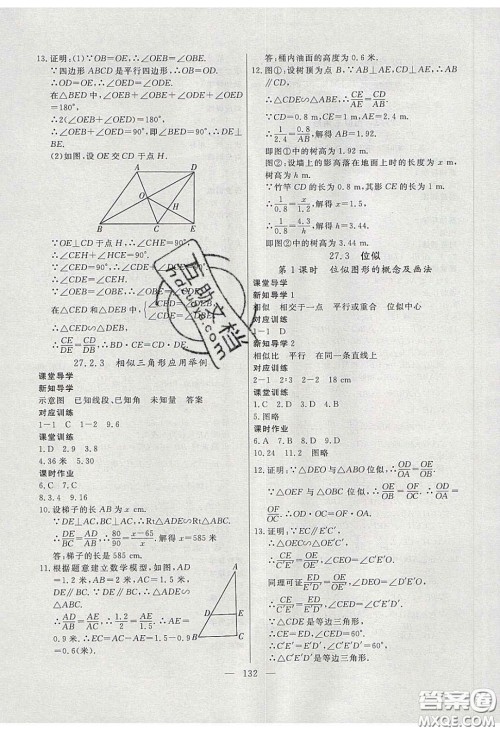 13.证明:(1)∵OB=OE,∴∠OEB=∠OBE.
∵四边形ABCD是平行四边形,∴OB=OD.
∴OD=OE.∴∠OED=∠ODE.
在△BED中,∠OEB+∠OBE+∠ODE+∠OED
=180°,
∴2(∠OEB+∠OED)=180°.
∴∠OEB+∠OED=90°,即∠BED=90°.
∴DE⊥BE.
(2)如图,设OE交CD于点H,
A
D
O
H
B
C
E
∵OE⊥CD于点H,∴∠CHE=90°,
∴∠CEH+∠HCE=90°.
∴∠CDE=∠CEH.
27.2.3 相似三角形应用举例
课堂导学
新知导学
示意图 已知线段、已知角 未知量 答案
对应训练
1-1 C 1-2 9.6
课堂训练
1.D 2.9 3.8
4.36米 5.30
课时作业
6.C 7.C
8.3.4 9.16
10.设梯子的长AB为x cm.
∵DE⊥AC,BC⊥AC,∴DE∥BC,
∴Rt△ADE∽Rt△ABC.
∴DE/BC=AD/AB,∴80/90=(x-65)/x.解得x=585
答:梯子的长是585 cm.
11.根据题意建立数学模型,如图,AD
=1.2米,AB=2米,AC=1.5米,
DE∥BC.∵DE∥BC,∴△ADE∽
△ABC.
∴AD/AB=AE/AC,∴1.2/2=AE/1.5,∴AE=
0.9米.∴EC=AC-AE=1.5-0.9
=0.6(米).
A
D
E
B
C
答:桶内油面的高度为0.6米.
12.图①:设树顶为点B,∵AB⊥AE,CD⊥AE,∴AB
∥CD,
∴△CDE∽△ABE,∴CE/AE=CD/AB.
∵CD=0.8 m,CE=1 m,AE=2.4 m,
∴1/2.4=0.8/AB,解得AB=1.92 m.
即图①中的树高为1.92 m.
图②:设墙上的影高落在地面上时的长度为x m,
树高为h m.
∵竹竿CD的长为0.8 m,其影CE的长为1 m,
∴1/0.8=x/1.2,解得x=1.5,
∴1/0.8=4.3/h,解得h=3.44
即图②中的树高为3.44 m.
27.3 位似
第1课时 位似图形的概念及画法
课堂导学
新知导学1
相似 相交于一点 平行或重合 位似中心
对应训练
1-1 D
新知导学2
相似比 平行 在同一条直线上
对应训练
2-1 2∶3 2-2 18 cm
课堂训练
1.C 2.D 3.D 4.2
5.图略
课时作业
6.A 7.B 8.D
10.24 11.2 图略
12.证明:∵△DEO与△ABO位似,∴OD/OA=OE/OB.
∵△OEF与△OBC位似,∴OE/OB=OF/OC.
∴OD/OA=OF/OC.∴OD·OC=OF·OA.
13.证明:∵EC∥E′C′.
∴△OEC∽△OE′C′.
∴CE/C′E′=OE/OE′,∠CEO=∠C′E′O.
同理可证ED/E′D′=OE/OE′,∠DEO=∠D′E′O.
∴CE/C′E′=ED/E′D′,∠CED=∠C′E′D′.
∵△CDE是等边三角形,
∴CE=ED,∠CED=60°.
∴C′E′=E′D′,∠C′E′D′=60°.
∴△C′D′E′是等边三角形.
132
互助文档
答案圈
MXQE.COM